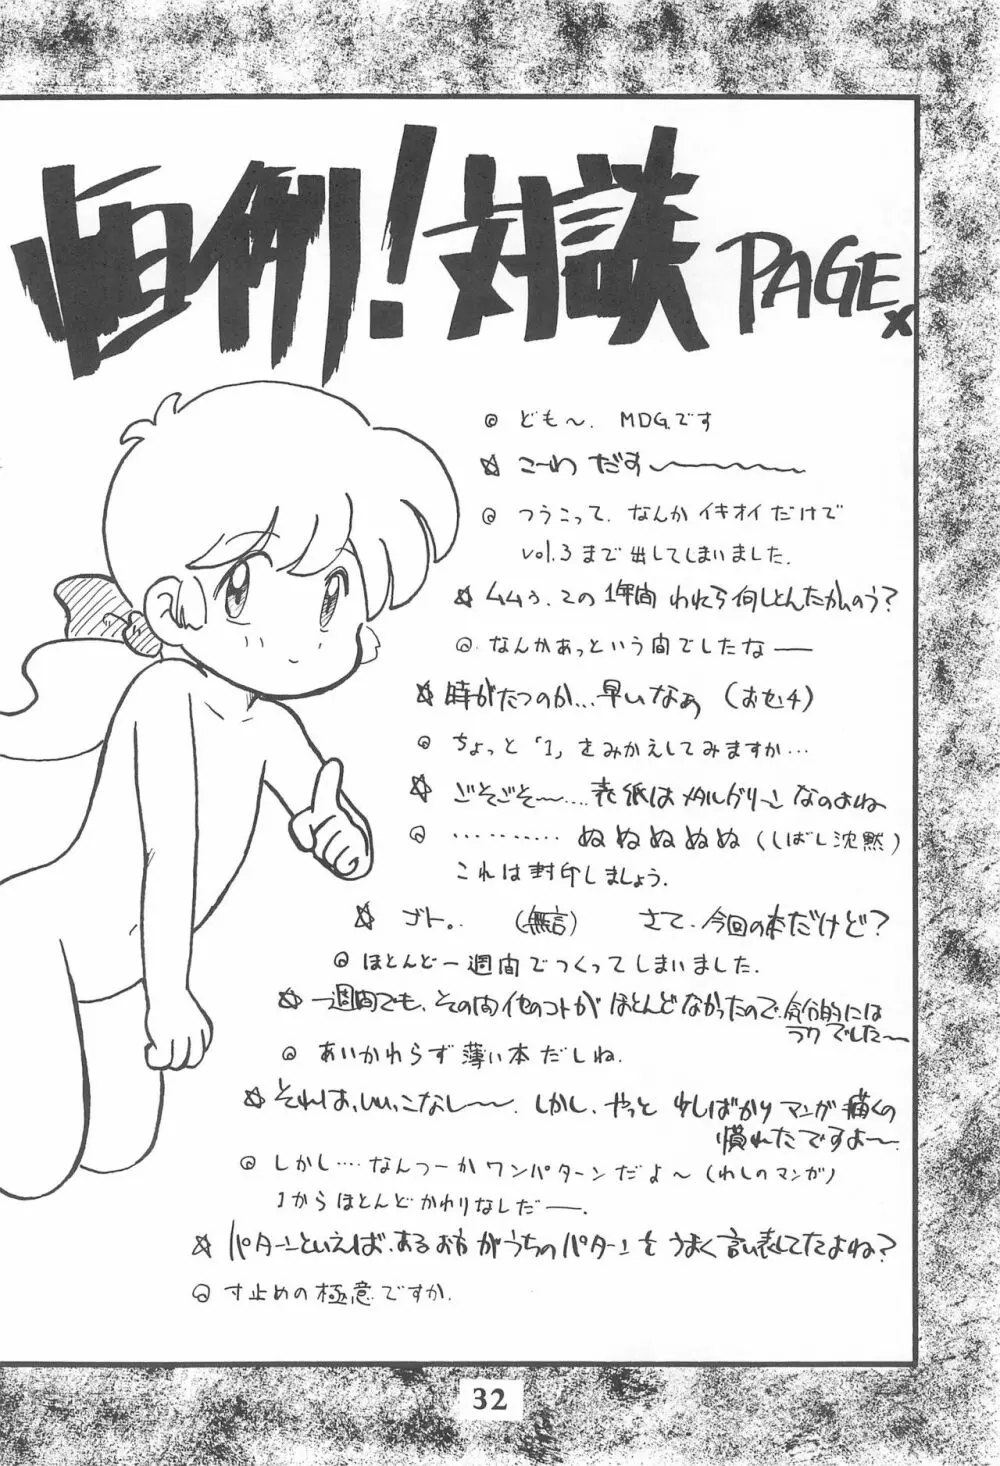 恒例!対談 PAGE
◎ども〜. MDG.です
☆こーわ だす〜〜〜
◎つうこって、なんかイキオイだけで
vol.3まで出してしまいました.
☆ムムぅ、この1年間 われら何しとんたかのう?
◎なんかあっという間でしたなー
☆時がたつのが...早いなぁ (おセ4)
◎ちょっと「1」をみかえしてみますか…
☆ごそごそ〜....表紙はメタルグリーンなのよね
◎………… ぬぬぬぬぬ(しばし沈黙)
これは封印しましょう.
☆ゴト。. (無言) さて、今回の本だけど?
◎ほとんど一週間でつくってしまいました.
☆一週間でも、その間他のコトがほとんどなかったので、気分的には
ラクでした〜
◎あいかわらず薄い本だしね.
☆それは、いい、こなし〜〜. しかし、やっと少しばかりマンガ描くの
慣れたですよ〜
◎しかし….なんつーかワンパターンだよ〜(わしのマンガ)
1からほとんどかわりなしだー.
☆パターンといえば、あるお方がうちのパターンをうまく言い表してたよね?
◎寸止めの極意ですか.
32